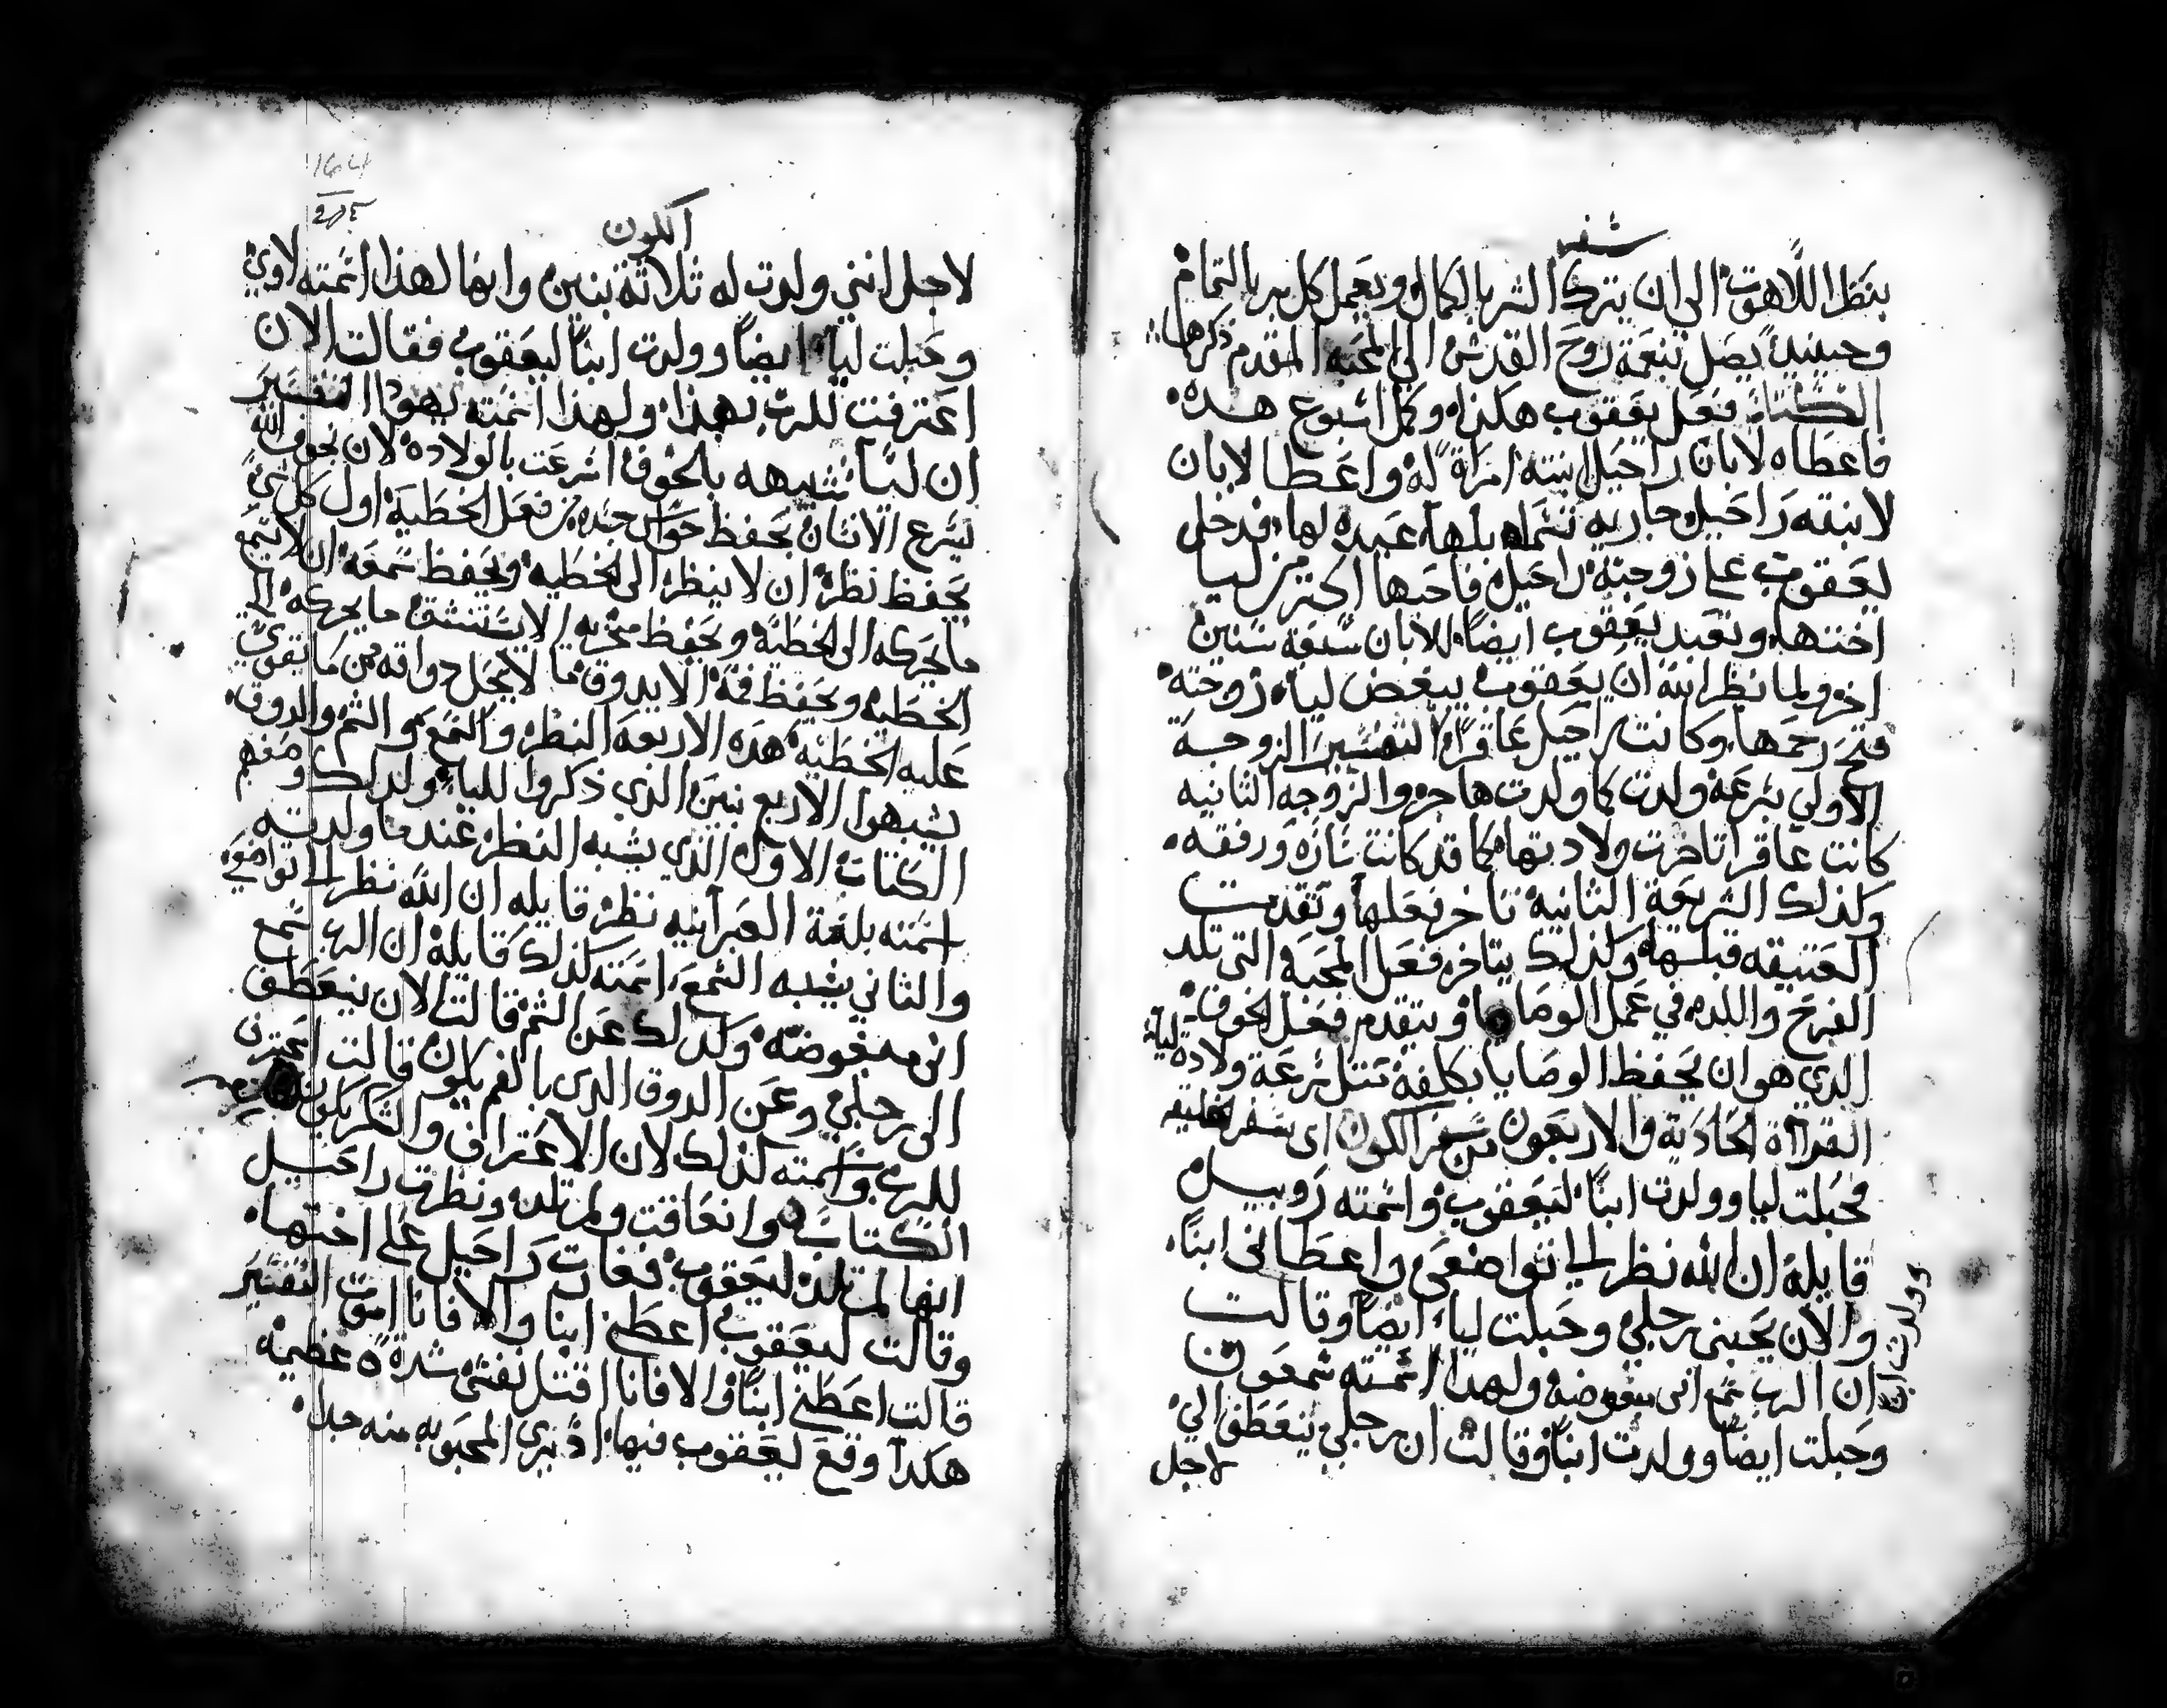 سفر
بنظر اللاهوت الى ان يترك الشر بالكمال ويعمل كل بر بالتمام
وحينيدٍ يصل بنعمة روح القدس الى المحبه المقدم ذكرها
الكتاب فعل يعقوب هكذا وكمل اسبوع هده
فاعطاه لابان راحيل ابنته امراة له واعطا لابان
لابنته راحيل جاريه تسما بلها عبده لها فدخل
يعقوب على زوجته راحيل فاحبها اكتر من ليا
اختها وتعبد يعقوب ايضاً للابان سبعة سنين
اخر ولما نظر الله ان يعقوب يبغض ليا زوجته
فتح رحمها وكانت راحيل عاقراً التفسير الزوجة
الاولى بسرعة ولدت كما ولدت هاجر والزوجه الثانيه
كانت عاقرا تاخرت ولادتها كما قد كانت ساره ورفقه
ولذلك الشريعة الثانية تاخر فعلها وتقدمت
العتيقه قبلها وكذلك يتاخر فعل المحبة التي تلد
الفرح واللده في عمل الوصايا ويتقدم فعل الخوف
الدي هو ان يحفظ الوصايا بكلفة متل سرعة ولادة ليا
القراة الحادية والاربعون من سفر الكون اى سفر الخليقه
فحبلت ليا وولدت ابناً ليعقوب واسمته روبيل
قايلة ان الله نظر الى تواضعى واعطانى ابناً
والان يحبنى رجلي وحبلت ليا ايضاً وقالت
وولدت ابنا
ان الرب سمع انى مبغوضه ولهدا اسمته شمعون
وحبلت ايضاً وولدت ابناً وقالت ان رجلي ينعطف الي
لاجل
164
الكون
لاجل اننى ولدت له ثلاثة بنين وايضا لهذا اسمته لاوي
وحبلت ليا ايضاً وولدت ابناً ليعقوب فقالت الان
اعترفت للرب بهذا ولهذا اسمته يهودا التفسير
ان ليا تشبه بالخوف اسرعت بالولاده لان بخوف الله
يسرع الانسان بحفظ حواس جسده من فعل الخطية اول كل شئ
يحفظ نظره ان لا ينظر الى الخطيه ويحفظ سمعه ان لا يسمع
ما يحركه الى الخطية ويحفظ منخريه الا يستنشق ما يحركه الى
الخطيه ويحفظ فمه الا يدوق ما لا يحل دواقه من ما تقوى
عليه الخطيه هده الاربعه النظر والسمع والشم والدوق
يشبهوا الاربع بنين الذي ذكروا لليا ولدلك
الكتاب الاول الذي يشبه النظر عندما ولدته
اسمته بلغة العبرانيه نظر قايله ان الله نظر الى تواضعي
والثاني يشبه السمع اسمته كذلك قايلة ان الرب سمع
انى مبغوضه وكدلك عن الشم قالت الان ينعطف
الى رجلي وعن الدوق الدى بالفم يكون قالت اعترف
للرب واسمته كذلك لان الاعتراف والشكر يكون
الكتاب وانعاقت ولم تلد ونظرت راحيل
انها لم تلد ليعقوب فغارت راحيل على اختها
وقالت ليعقوب اعطنى ابنا والا فانا اموت التفسير
قالت اعطني ابناً والا فانا اقتل نفسى شدة عظيمه
هكدا وقع يعقوب فيها اذ يرى المحبوبه منه